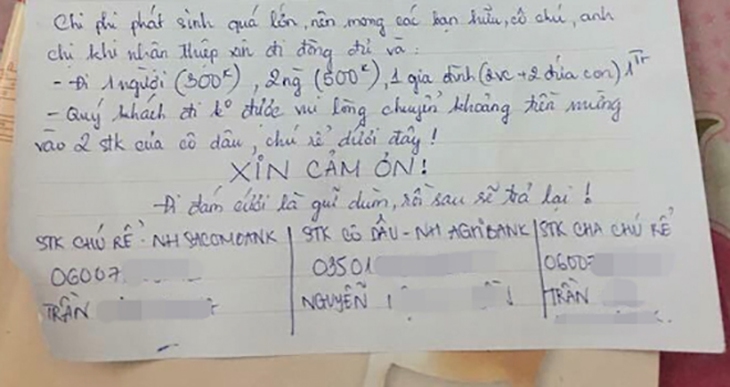 Chi phí phát sinh quá lớn, nên mong các bạn hữu, cô chú, anh
chị khi nhận thiệp xin đi đông đủ và:
- Đi 1 người (300K), 2ng (500K), 1 gia đình (2vc + 2 đứa con) 1Tr
- Quý khách đi k° được vui lòng chuyển khoảng tiền mừng
vào 2 stk của cô dâu, chú rể dưới đây!
XIN CẢM ƠN!
Đi đám cưới là gửi dùm, rồi sau sẽ trả lại!
STK CHÚ RỂ - NH SACOMBANK | STK CÔ DÂU - NH AGRIBANK | STK CHA CHÚ RỂ
06007 | 03501 | 06007
TRẦN | NGUYỄN | TRẦN